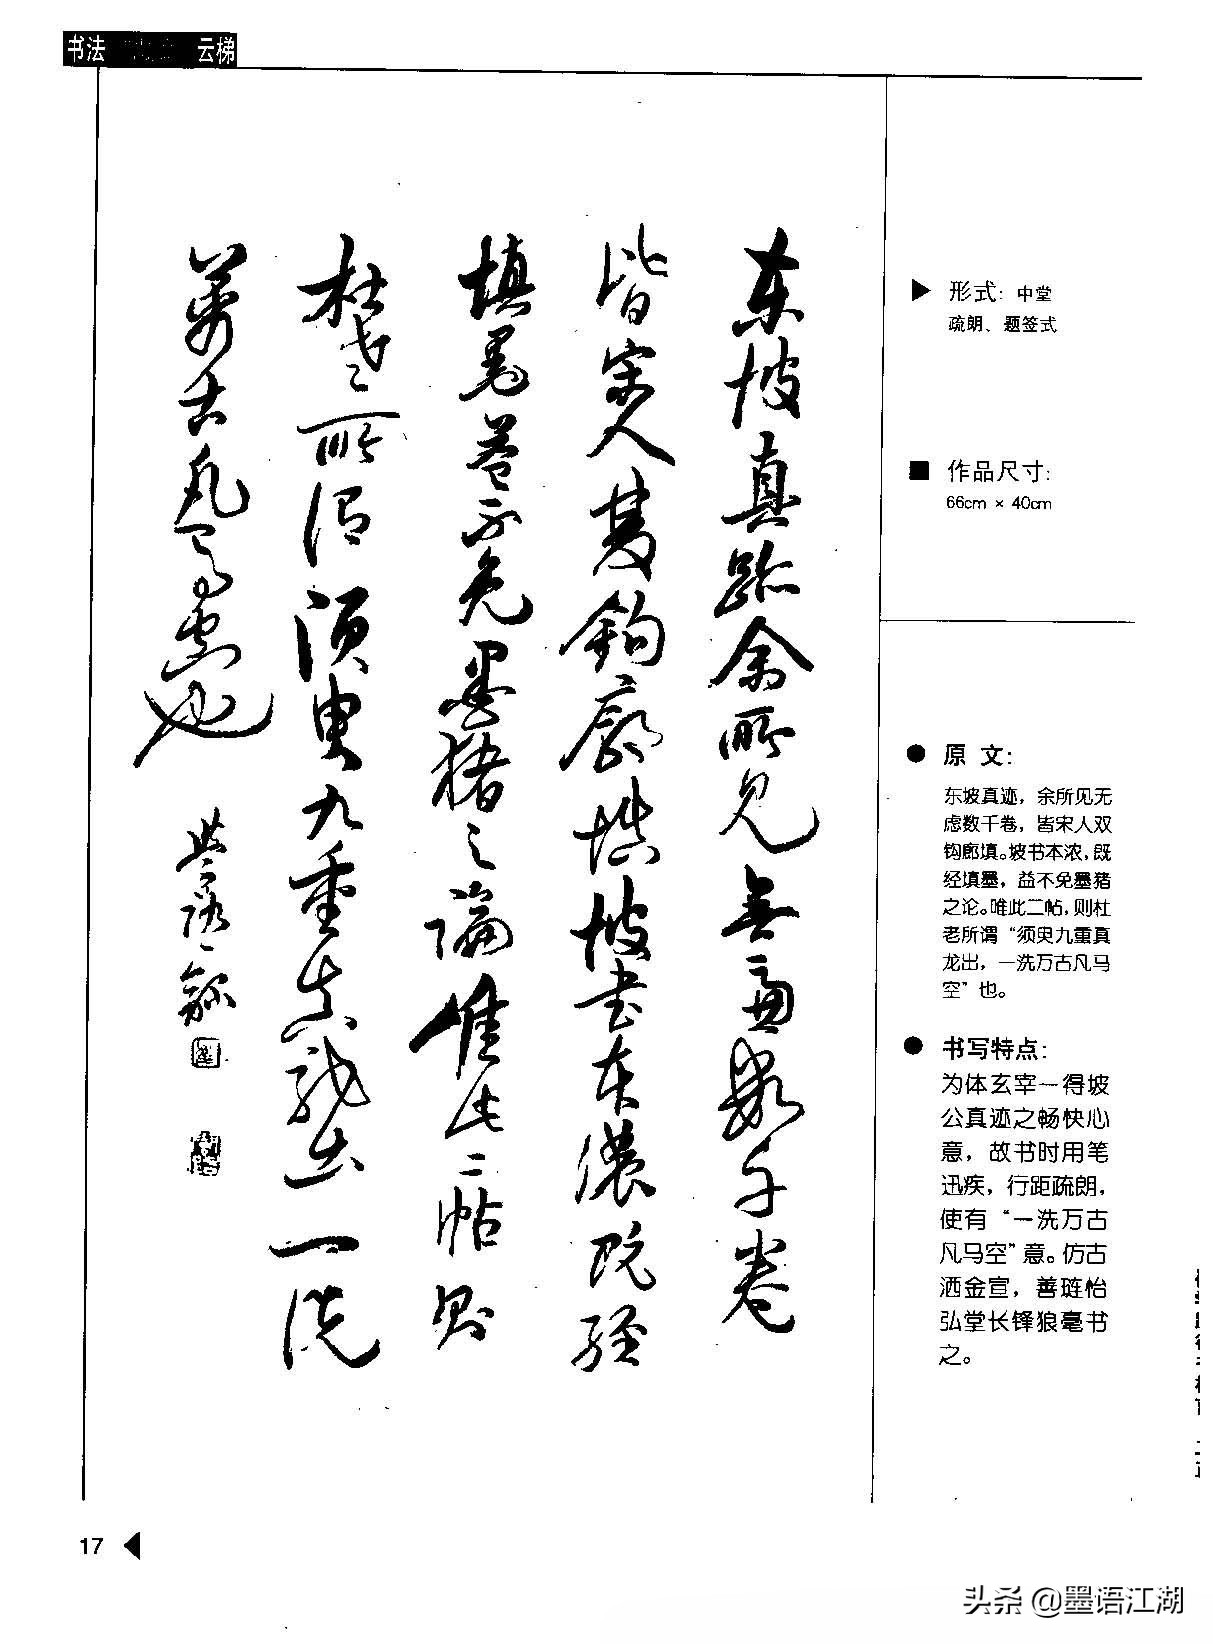 书法
云梯
東坡真跡余所見無慮數千卷
皆宋人雙鈎廓填坡書本濃既經
填墨益不免墨猪之論唯此二帖則
杜老所謂須臾九重真龍出一洗
萬古凡馬空也
▶ 形式: 中堂
疏朗、题签式
■ 作品尺寸:
66cm × 40cm
● 原 文:
东坡真迹，余所见无
虑数千卷，皆宋人双
钩廊填。坡书本浓，既
经填墨，益不免墨猪
之论。唯此二帖，则杜
老所谓“须臾九重真
龙出，一洗万古凡马
空”也。
● 书写特点:
为体玄宰一得坡
公真迹之畅快心
意，故书时用笔
迅疾，行距疏朗，
使有“一洗万古
凡马空”意。仿古
洒金宣，善琏怡
弘堂长锋狼毫书
之。
17
头条 @墨语江湖